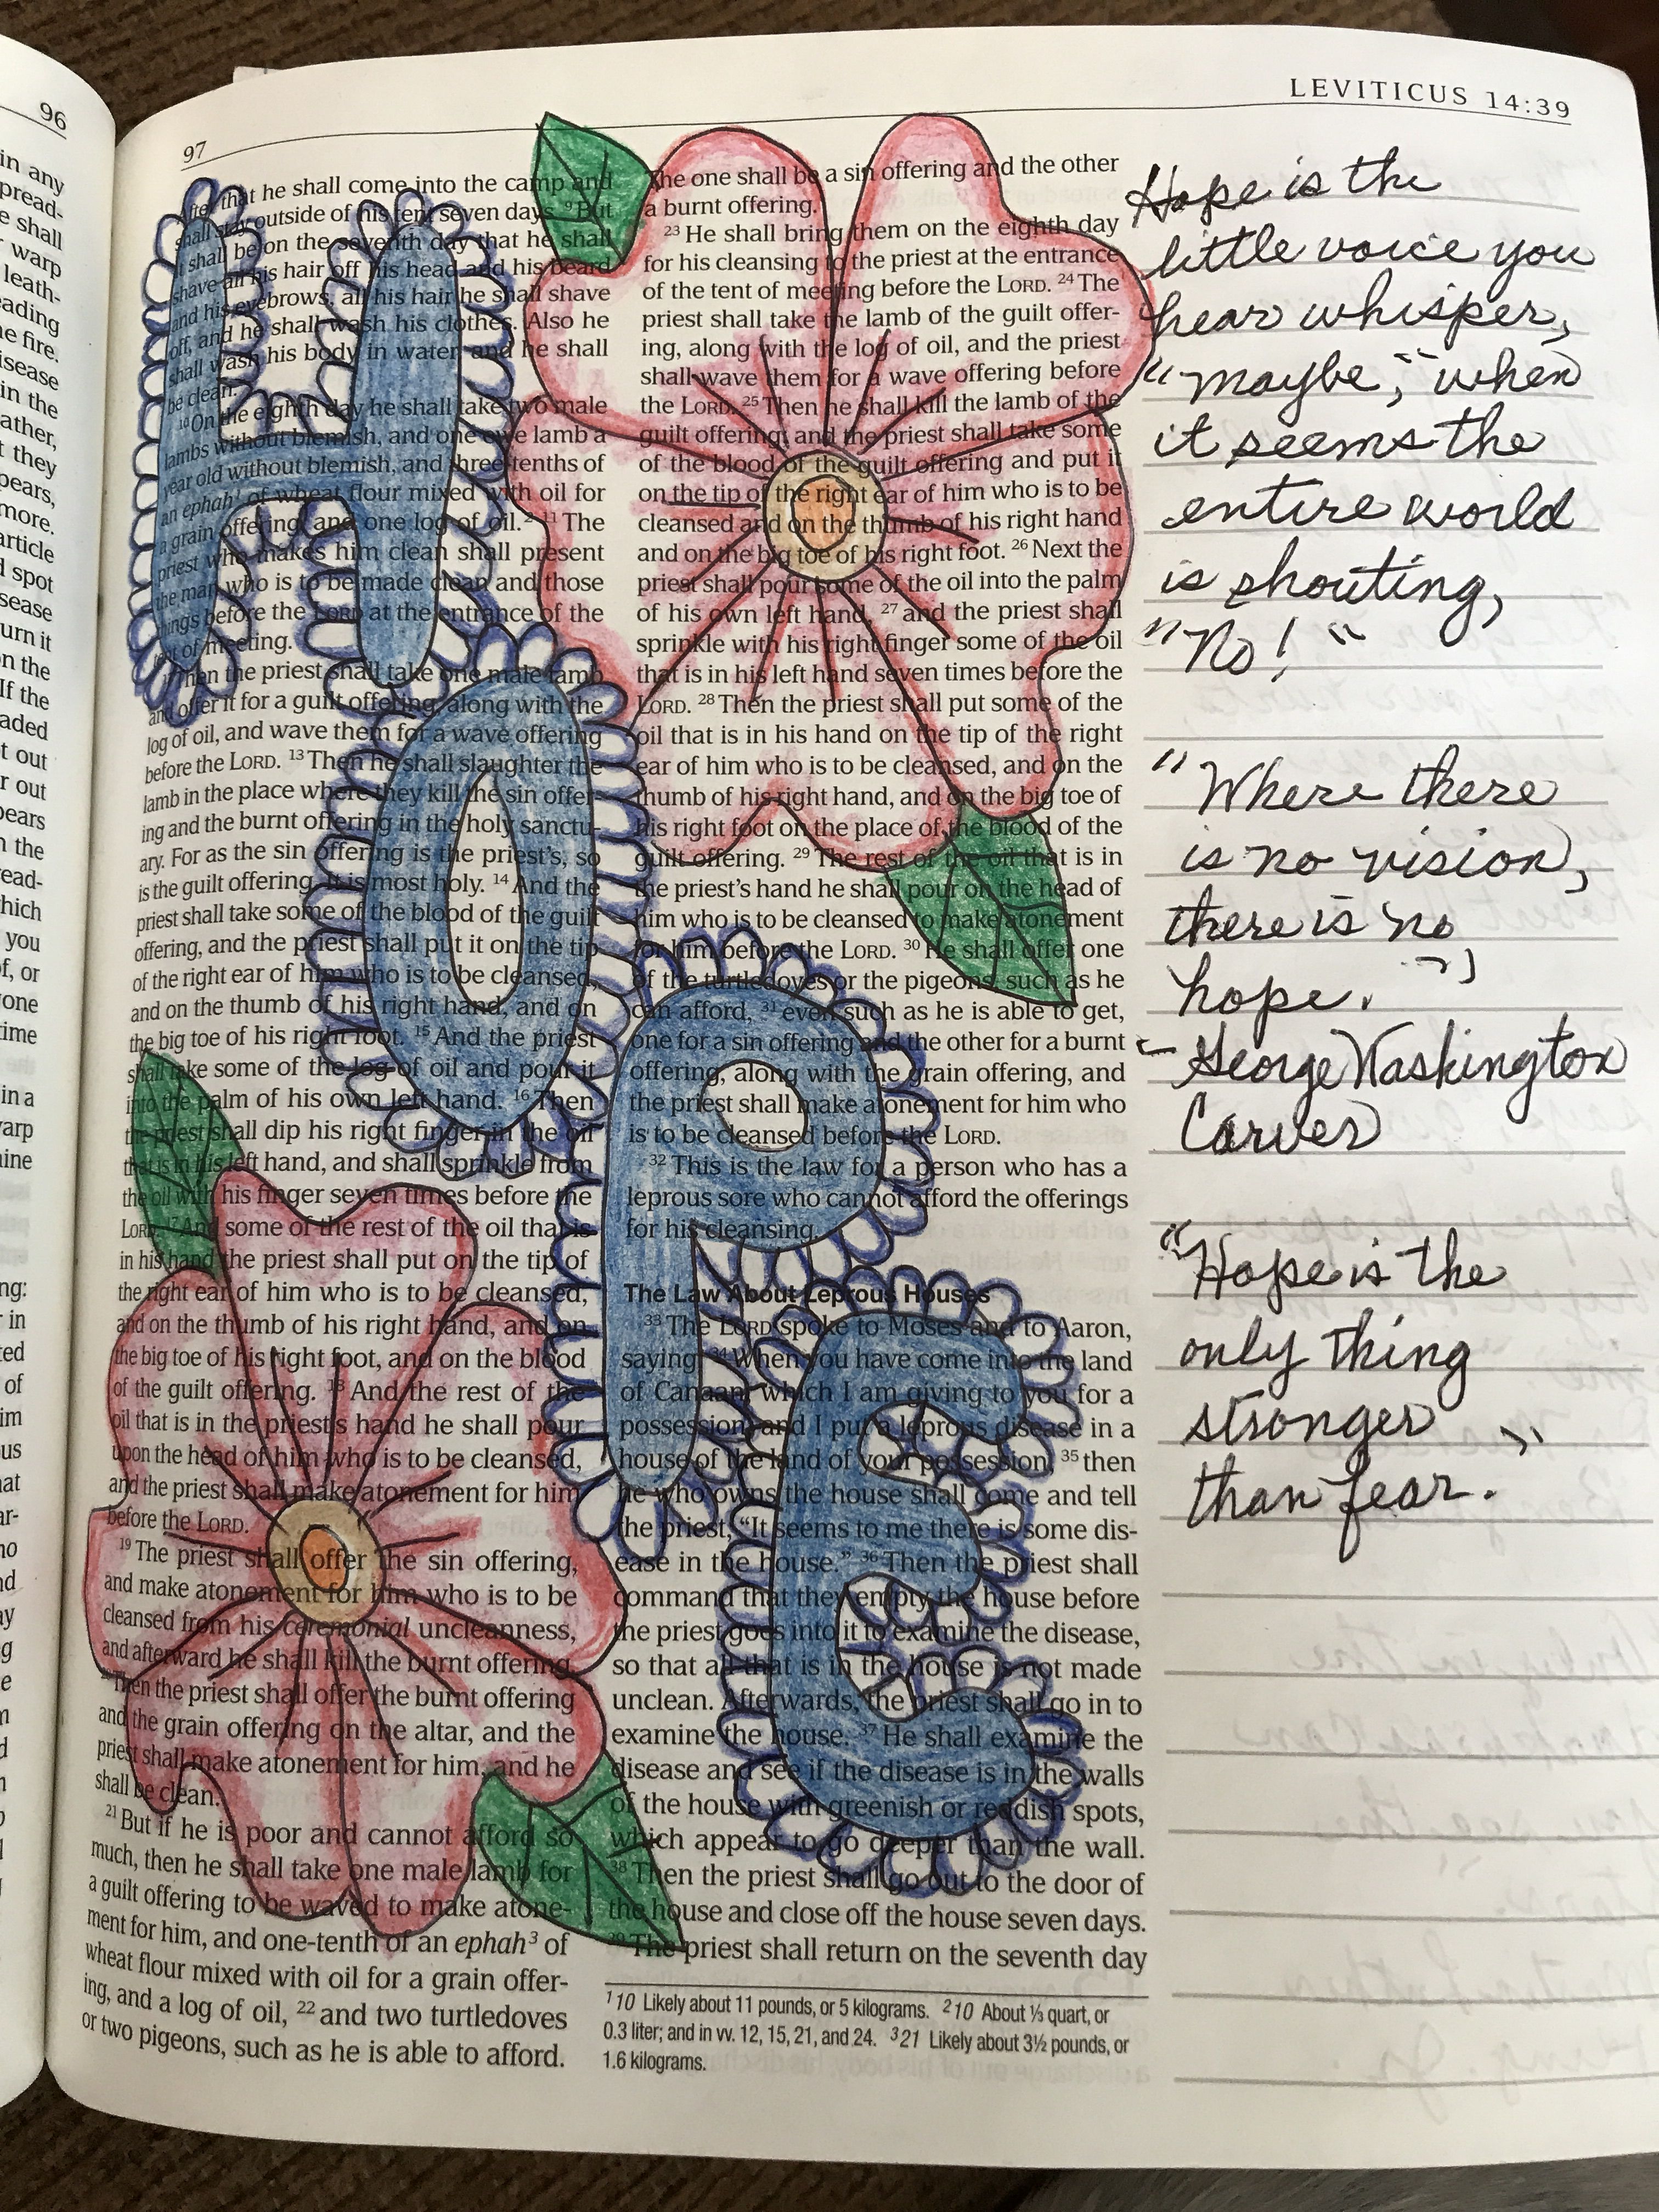 96
in any
pread-
e shall
warp
leath-
ading
he fire.
isease
in the
ather,
t they
pears,
more.
article
d spot
sease
urn it
on the
If the
aded
t out
r out
pears
n the
ead-
hich
you
of, or
one
time
in a
arp
ine
ng:
in
ted
of
im
us
hat
ar-
no
nd
ay
g
e
n
d
97
LEVITICUS 14:39
After that he shall come into the camp and
shall stay outside of his tent seven days. 9 But
it shall be on the seventh day that he shall
shave all his hair off his head and his beard
and his eyebrows, all his hair he shall shave
off, and he shall wash his clothes. Also he
shall wash his body in water, and he shall
be clean.
10 On the eighth day he shall take two male
lambs without blemish, and one ewe lamb a
year old without blemish, and three-tenths of
an ephah1 of wheat flour mixed with oil for
a grain offering, and one log of oil.2 11 The
priest who makes him clean shall present
the man who is to be made clean and those
things before the LORD at the entrance of the
tent of meeting.
12 Then the priest shall take one male lamb
and offer it for a guilt offering, along with the
log of oil, and wave them for a wave offering
before the LORD. 13 Then he shall slaughter the
lamb in the place where they kill the sin offer-
ing and the burnt offering in the holy sanctu-
ary. For as the sin offering is the priest's, so
is the guilt offering. It is most holy. 14 And the
priest shall take some of the blood of the guilt
offering, and the priest shall put it on the tip
of the right ear of him who is to be cleansed,
and on the thumb of his right hand, and on
the big toe of his right foot. 15 And the priest
shall take some of the log of oil and pour it
into the palm of his own left hand. 16 Then
the priest shall dip his right finger in the oil
that is in his left hand, and shall sprinkle from
the oil with his finger seven times before the
LORD. 17 And some of the rest of the oil that is
in his hand the priest shall put on the tip of
the right ear of him who is to be cleansed,
and on the thumb of his right hand, and on
the big toe of his right foot, and on the blood
of the guilt offering. 18 And the rest of the
oil that is in the priest's hand he shall pour
upon the head of him who is to be cleansed,
and the priest shall make atonement for him
before the LORD.
19 The priest shall offer the sin offering,
and make atonement for him who is to be
cleansed from his ceremonial uncleanness,
and afterward he shall kill the burnt offering.
20 Then the priest shall offer the burnt offering
and the grain offering on the altar, and the
priest shall make atonement for him, and he
shall be clean.
21 But if he is poor and cannot afford so
much, then he shall take one male lamb for
a guilt offering to be waved to make atone-
ment for him, and one-tenth of an ephah3 of
wheat flour mixed with oil for a grain offer-
ing, and a log of oil, 22 and two turtledoves
or two pigeons, such as he is able to afford.
The one shall be a sin offering and the other
a burnt offering.
23 He shall bring them on the eighth day
for his cleansing to the priest at the entrance
of the tent of meeting before the LORD. 24 The
priest shall take the lamb of the guilt offer-
ing, along with the log of oil, and the priest
shall wave them for a wave offering before
the LORD. 25 Then he shall kill the lamb of the
guilt offering, and the priest shall take some
of the blood of the guilt offering and put it
on the tip of the right ear of him who is to be
cleansed and on the thumb of his right hand
and on the big toe of his right foot. 26 Next the
priest shall pour some of the oil into the palm
of his own left hand, 27 and the priest shall
sprinkle with his right finger some of the oil
that is in his left hand seven times before the
LORD. 28 Then the priest shall put some of the
oil that is in his hand on the tip of the right
ear of him who is to be cleansed, and on the
thumb of his right hand, and on the big toe of
his right foot on the place of the blood of the
guilt offering. 29 The rest of the oil that is in
the priest's hand he shall pour on the head of
him who is to be cleansed to make atonement
for him before the LORD. 30 He shall offer one
of the turtledoves or the pigeons, such as he
can afford, 31 even such as he is able to get,
one for a sin offering and the other for a burnt
offering, along with the grain offering, and
the priest shall make atonement for him who
is to be cleansed before the LORD.
32 This is the law for a person who has a
leprous sore who cannot afford the offerings
for his cleansing.
The Law About Leprous Houses
33 The LORD spoke to Moses and to Aaron,
saying: 34 When you have come into the land
of Canaan, which I am giving to you for a
possession, and I put a leprous disease in a
house of the land of your possession, 35 then
he who owns the house shall come and tell
the priest, “It seems to me there is some dis-
ease in the house.” 36 Then the priest shall
command that they empty the house before
the priest goes into it to examine the disease,
so that all that is in the house is not made
unclean. Afterwards, the priest shall go in to
examine the house. 37 He shall examine the
disease and see if the disease is in the walls
of the house with greenish or reddish spots,
which appear to go deeper than the wall.
38 Then the priest shall go out to the door of
the house and close off the house seven days.
39 The priest shall return on the seventh day
1 10 Likely about 11 pounds, or 5 kilograms. 2 10 About ⅓ quart, or
0.3 liter; and in vv. 12, 15, 21, and 24. 3 21 Likely about 3½ pounds, or
1.6 kilograms.
HOPE
Hope is the
little voice you
hear whisper,
"maybe," when
it seems the
entire world
is shouting,
"No!"
"Where there
is no vision,
there is no
hope."
- George Washington
Carver
"Hope is the
only thing
stronger
than fear."